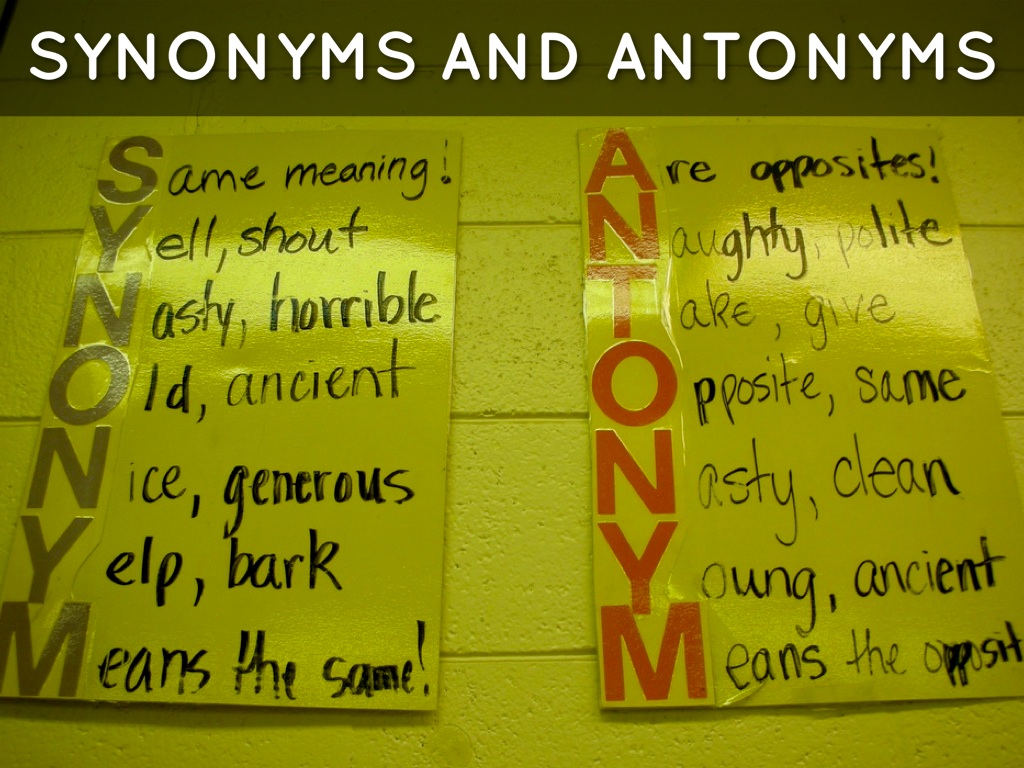 SYNONYMS AND ANTONYMS
Same meaning!
Yell, shout
Nasty, horrible
Old, ancient
Nice, generous
Yelp, bark
Means the same!
Are opposites!
Naughty, polite
Take, give
Opposite, same
Nasty, clean
Young, ancient
Means the opposit